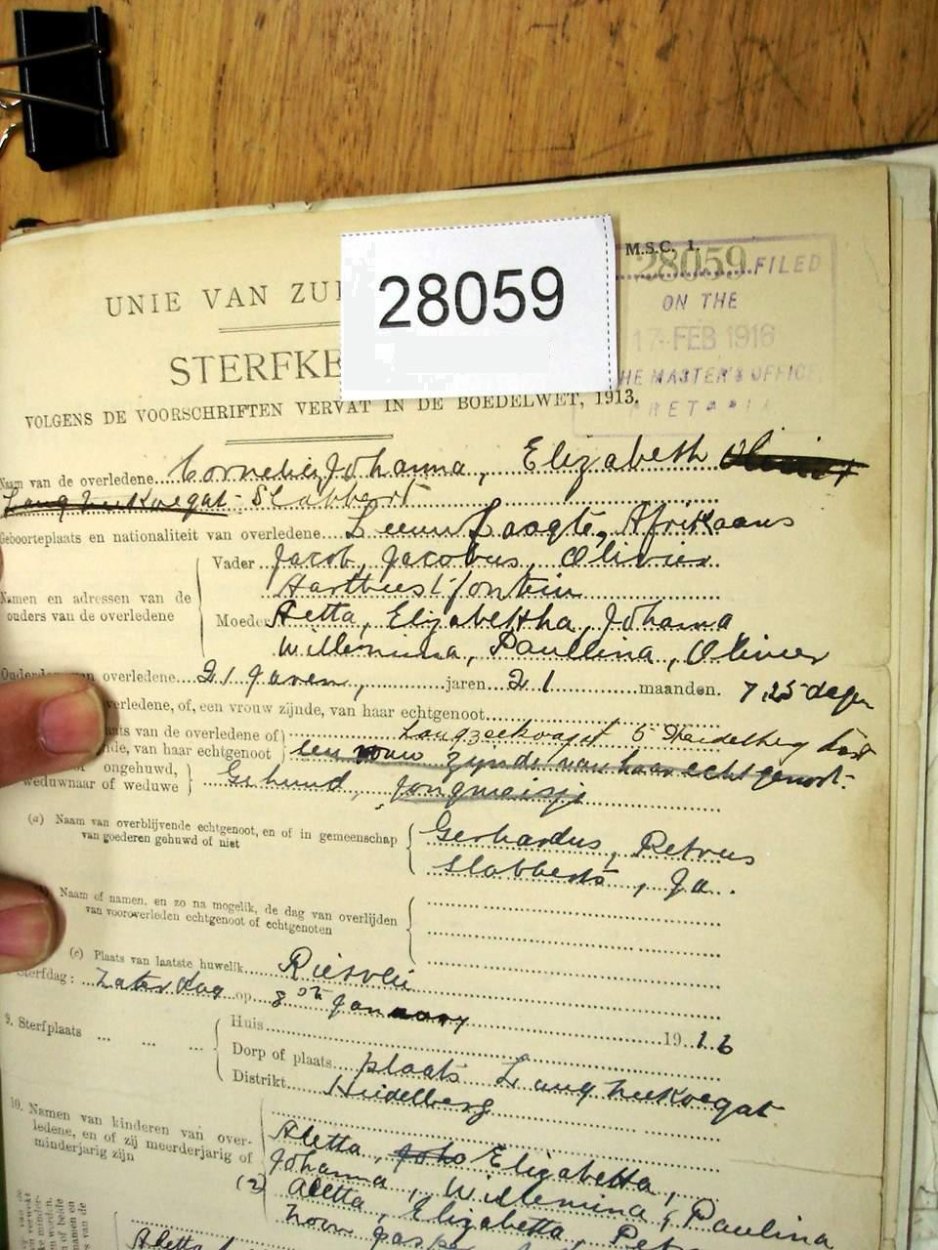 28059
M.S.C. 1.
28059 FILED
ON THE
17 FEB 1916
HE MASTER'S OFFIC
PRETORIA
UNIE VAN ZUI
STERFKE
VOLGENS DE VOORSCHRIFTEN VERVAT IN DE BOEDELWET, 1913.
Naam van de overledene Cornelia, Johanna, Elizabeth
Slabbert
Geboorteplaats en nationaliteit van overledene Leeuw Laagte, Afrikaans
Vader Jacob, Jacobus, Olivier
Hartbeestfontein
Namen en adressen van de
ouders van de overledene
Moeder Aletta, Elizabettha, Johanna
Willemina, Paullina, Olivier
overledene 21 Jaren, jaren 21 maanden. 7, 25 dagen
verledene, of, een vrouw zijnde, van haar echtgenoot
ats van de overledene of
nde, van haar echtgenoot een vrouw zijnde van haar echtgenoot.
ongehuwd,
weduwnaar of weduwe Gehuud, Jongmeisje
(a) Naam van overblijvende echtgenoot, en of in gemeenschap
van goederen gehuwd of niet
Gerhardus, Petrus
Slabberts, Ja.
Naam of namen, en zo na mogelik, de dag van overlijden
van vooroverleden echtgenoot of echtgenoten
(c) Plaats van laatste huwelik Rietvlei
Sterfdag: Zaterdag op 8 ste January 1916
9. Sterfplaats ... ... ...
Huis
Dorp of plaats plaats Langzeekoegat
Distrikt Heidelberg
10. Namen van kinderen van over-
ledene, en of zij meerderjarig of
minderjarig zijn
Aletta, Joha Elizabetta,
Johanna, Willemina, Paulina
(2) Aletta, Elizabetta,
Aletta